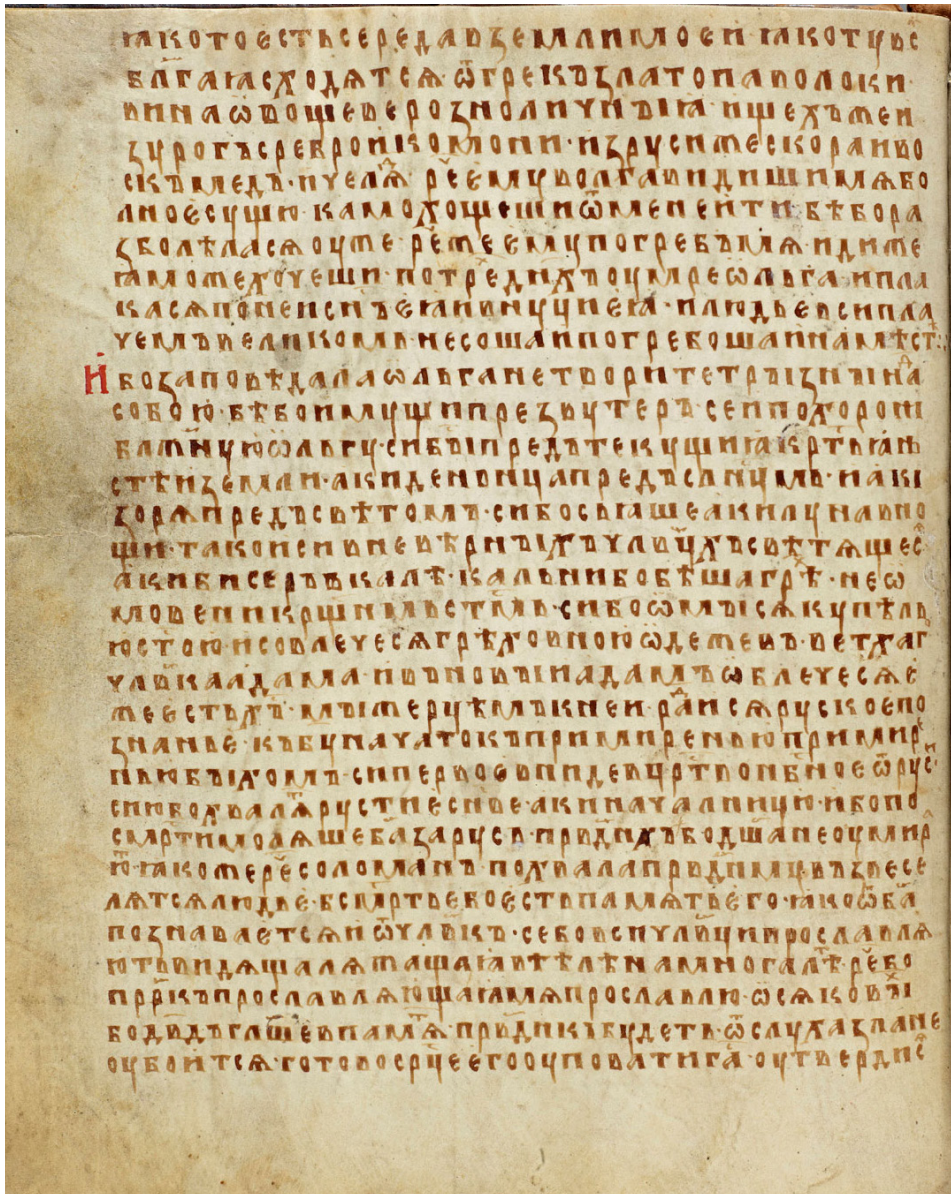 ꙗко то єсть середа в земли моєи ꙗко ту вс̑
бл҃гаꙗ сходѧтсѧ ѿ грекъ злато паволоки
вина ѡвощеве розноличныꙗ и щехъ же и
з урогъ сребро и комони из руси же скора и во
скъ медъ и челѧⷣ реⷱ єму волга видиши мѧ бо
лное сущю камо хощеши ѿ мене ити бѣ бо ра
зболѣласѧ оуже реⷱ же єму погребъ мѧ иди же
ꙗможе хочеши по трехъ д҃нхъ оумре ѡльга и пла
касѧ по неи с҃нъ єꙗ и внуци єꙗ и людьє вси пла
чемъ великомь несоша и погребоша и на мѣстѣ
и бо заповѣдала ѡльга не творити трызны наⷣ
собою бѣ бо имущи презвутеръ сеи похорони
бл҃жную ѡльгу си бы предътекущиꙗ крⷭ҇тьꙗнь
стѣи земли аки деньница предъ слн҃цмь и аки
зорѧ предъ свѣтомъ си бо сьꙗше аки луна в но
щи тако и си в невѣрныхъ чл҃вцхъ свѣтѧщесⷭ
аки бисеръ в калѣ кальни бо бѣша грѣⷯ не ѡ
мовени крⷭщ҃ниємь ст҃мь си бо ѡмысѧ купѣль
ю ст҃ою и совлечесѧ грѣховною ѡдеже въ ветхаг
чл҃вка адама и въ новыи адамъ ѡблечесѧ є
же єсть хс҃ъ мы же рцѣмъ к неи радуисѧ руское по
знаньє къ б҃у начатокъ примиренью примире
нью быхомъ си первоє вниде в црⷭ҇тво нбⷭ҇ное ѿ рус
сию бо хвалѧⷮ рустиє с҃нве аки началницю ибо по
смр҃ти молѧше б҃а за русь првд҃ныхъ бо дш҃а не оумир
ю ꙗкоже реⷱ соломанъ похвала првд҃нму възвесе
лѧтсѧ людьє бесмр҃тьє бо єсть памѧть єго ꙗко ѿ б҃а
познаваєтсѧ и ѿ чл҃вкъ се бо вси чл҃вци прославлѧ
ють видѧща лежащаꙗ в тѣлѣ на многа лѣⷮ реⷱ бо
прⷪ҇ркъ прославлѧющаꙗ мѧ прославлю ѡ сѧковыⷯ
бо д҃вдъ гл҃ше в памѧⷮ првд҃никъ будеть ѿ слуха зла не
оубоитсѧ готово срⷣце єго оуповати на г҃а оутвердисⷭ